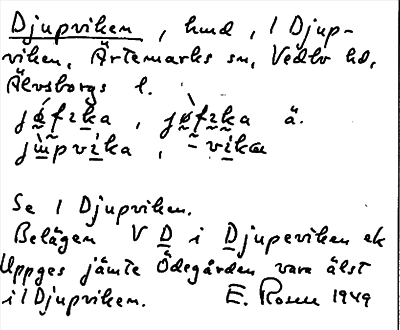 Djupviken, hmd, i Djup-
viken, Ärtemarks sn, Vedbo hd,
Älvsborgs l.
jǿfzka, jø̀fzka ä.
jɯ̀pvika, -vikæ
Se i Djupviken.
Belägen V D i Djupeviken ek
Uppges jämte Ödegården vara älst
i i Djupviken. E. Rosen 1949